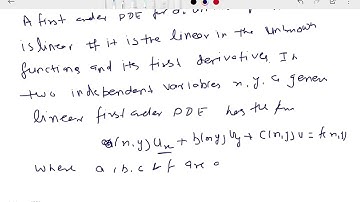 A first order PDE for a
is linear if it is the linear in the unknown
functions and its first derivatives. In
two independent variables x, y, a genera
linear first order PDE has the
a(x,y) Ux + b(x,y) Uy + C(x,y) U = f(x,y)
where a, b, c & f are